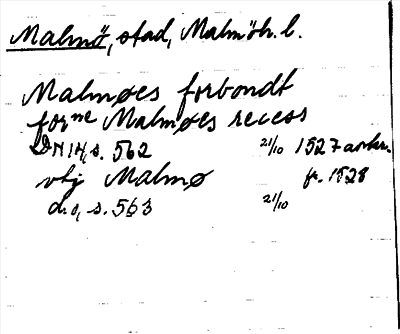 Malmö, stad, Malmöh. l.
Malmøes forbondt
for^ne Malmøes recess
DN 14, s. 562 21/10 1527 avskr.
vtj Malmø fr. 1528
d:o, s. 563 21/10